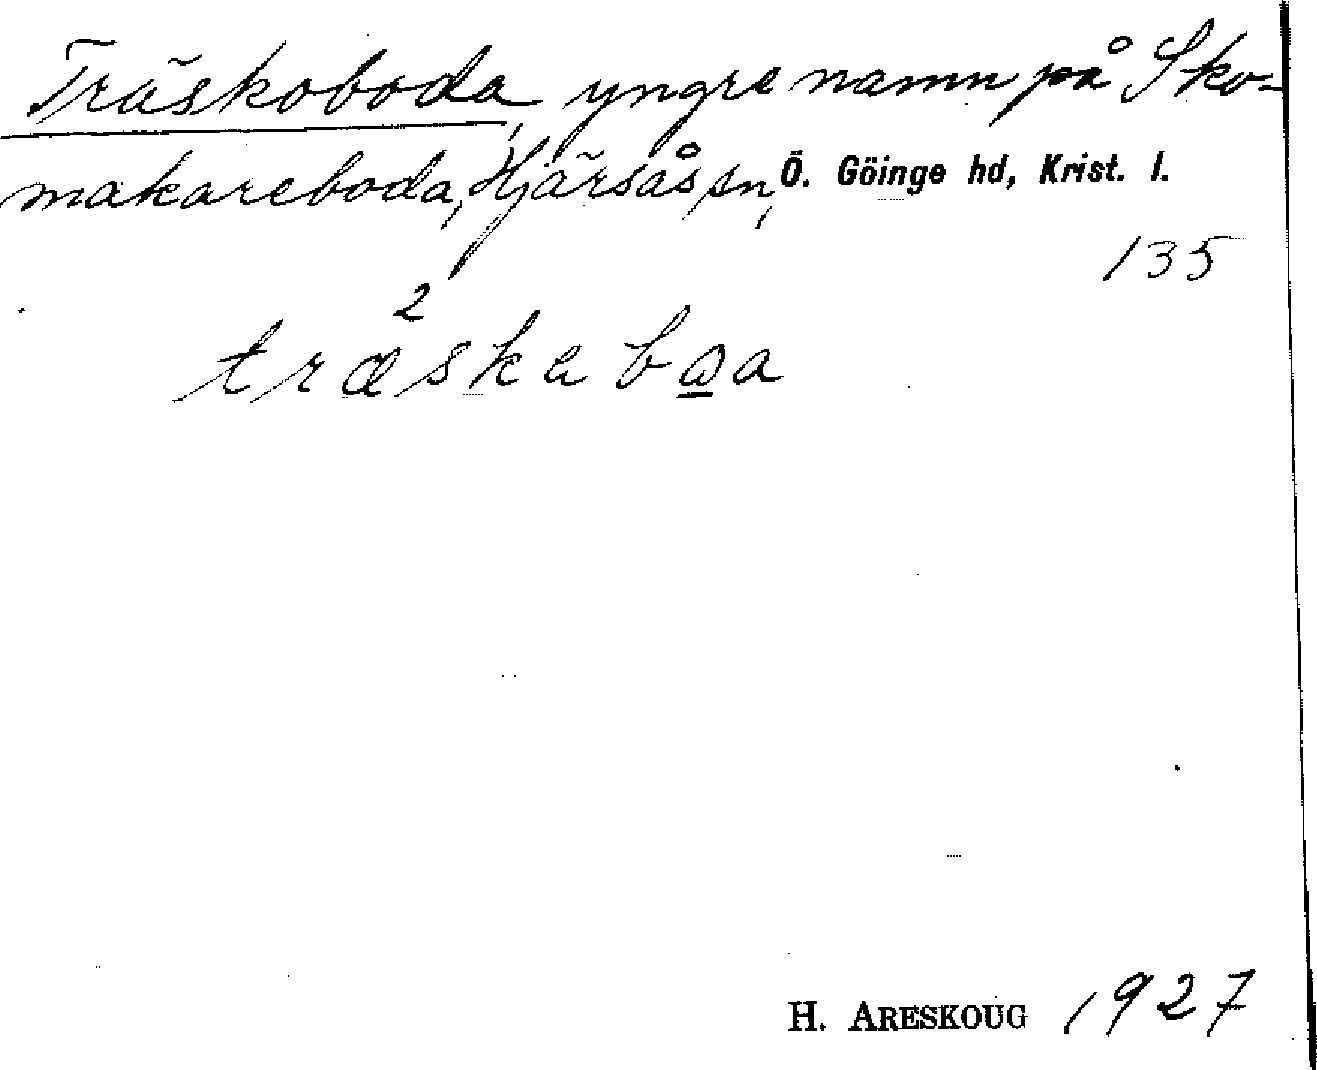 Träskoboda, yngre namn på Sko-
makareboda, Hjärsås sn, Ö. Göinge hd, Krist. l.
135
2
H. ARESKOUG 1927